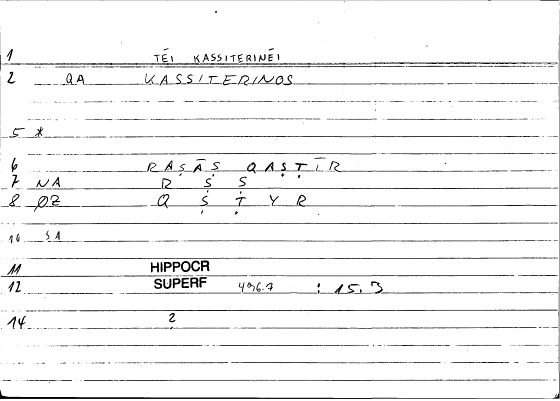 1 TĒI KASSITERINĒI
2 QA KASSITERINOS
5 *
6 RAṢĀṢ QAṢṬĪR
7 NA R Ṣ Ṣ
8 ØZ Q Ṣ Ṭ Y R
10 SA
11 HIPPOCR
12 SUPERF : 15.3
14 2